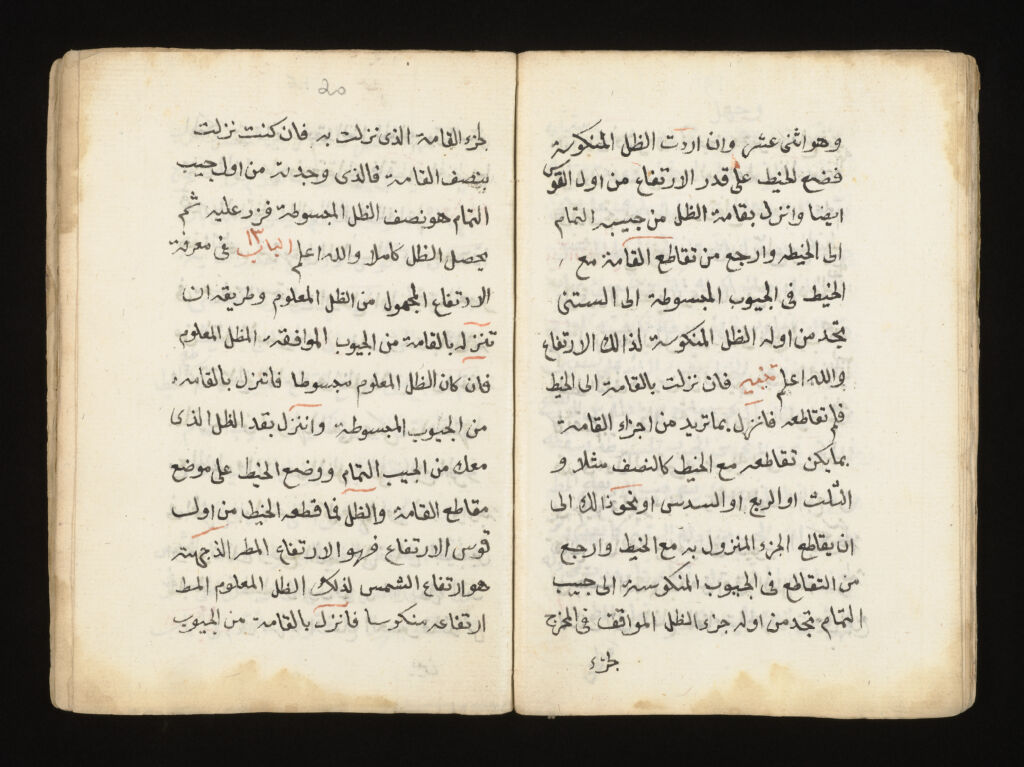 وهو اثنى عشر وان اردت الظل المنكوسة
فضع الخيط على قدر الارتفاع من اول القوس
ايضا وانزل بقامة الظل من جيب التمام
الى الخيط وارجع من تقاطع القامة مع
الخيط فى الجيوب المبسوطة الى الستنى
تجد من اوله الظل المنكوسة لذالك الارتفاع
والله اعلم تنبيه فان نزلت بالقامة الى الخيط
فلم تقاطعه فانزل بما تريد من اجزاء القامة
بما يكن تقاطعه مع الخيط كالنصف مثلا و
الثلث او الربع او السدس او نحو ذالك الى
ان يقاطع الجزء المنزول به مع الخيط وارجع
من التقاطع فى الجيوب المنكوسة الى جيب
التمام تجد من اوله جزء الظل المواقف فى المخرج
لجزء
20
لجزء القامة الذى نزلت به فان كنت نزلت
بنصف القامة فالذى وجدته من اول جيب
التمام هو نصف الظل المبسوطة فزد عليه ثم
يحصل الظل كاملا والله اعلم الباب ١٣ فى معرفة
الارتفاع المجهول من الظل المعلوم وطريقه ان
تنزله بالقامة من الجيوب الموافقه الظل المعلوم
فان كان الظل المعلوم مبسوطا فانزل بالقامه
من الجيوب المبسوطة وانزل بقد الظل الذى
معك من الجيب التمام ووضع الخيط على موضع
مقاطع القامة والظل فما قطعه الخيط من اول
قوس الارتفاع فهو الارتفاع المط الذ جهته
هو ارتفاع الشمس لذلك الظل المعلوم المط
ارتفاعه منكوسا فانزل بالقامة من الجيوب